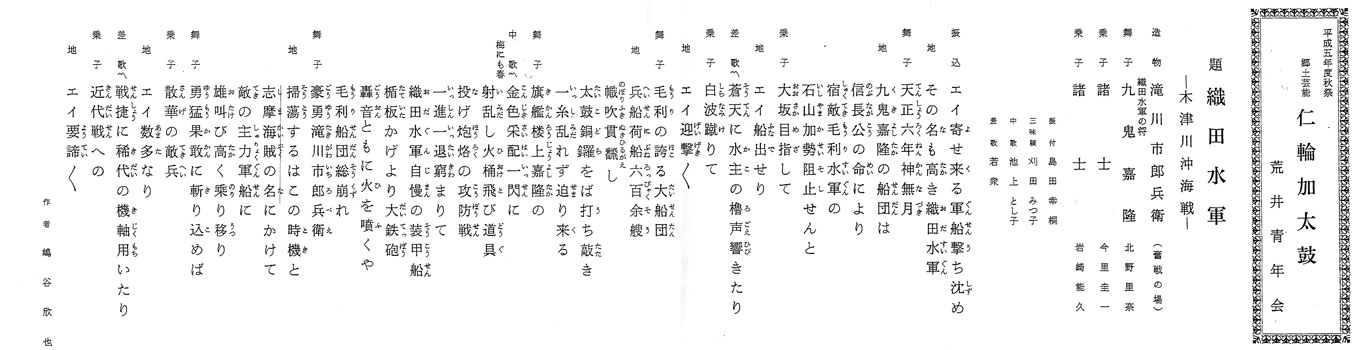 平成五年度秋祭
郷土芸能
仁輪加太鼓
荒井青年会
題 織田水軍
―木津川沖海戦―
造物 滝川市郎兵衛 (奮戦の場)
舞子 九鬼嘉隆 北野里奈
織田水軍の将
乗子 諸士 今里圭一
乗子 諸士 岩崎能久
振付 島田幸桐
三味線 刈田みつ子
中歌 池上とし子
差歌 若衆
振込 エイ寄せ来る軍船撃ち沈め
地 その名も高き織田水軍
舞子 天正六年神無月
地 九鬼嘉隆の船団は
信長公の命により
宿敵毛利水軍の
石山加勢阻止せんと
乗子 大坂目指して
地 エイ船出せり
差歌〽 蒼天に水主の櫓声響きたり
乗子 白波蹴りて
地 エイ迎撃〱
舞子 毛利の誇る大船団
地 兵船荷船六百余艘
幟吹貫飜し
太鼓銅鑼をば打ち敲き
一糸乱れず迫り来る
舞子 旗艦楼上嘉隆の
中歌〽 金色采配一閃に
梅にも春
射乱し火桶飛び道具
投げ炮烙の攻防戦
一進一退窮まりて
織田水軍自慢の装甲船
楯板かげより大鉄砲
轟音ともに火を噴くや
毛利船団総崩れ
舞子 豪勇滝川市郎兵衛
地 掃蕩するはこの時機と
志摩海賊の名にかけて
敵の主力軍船に
雄叫び高く乗り移り
舞子 勇猛果敢に斬り込めば
乗子 散華の敵兵
地 エイ数多なり
差歌〽 戦捷に稀代の機軸用いたり
乗子 近代戦への
地 エイ要諦〱
作者 嶋谷欣也